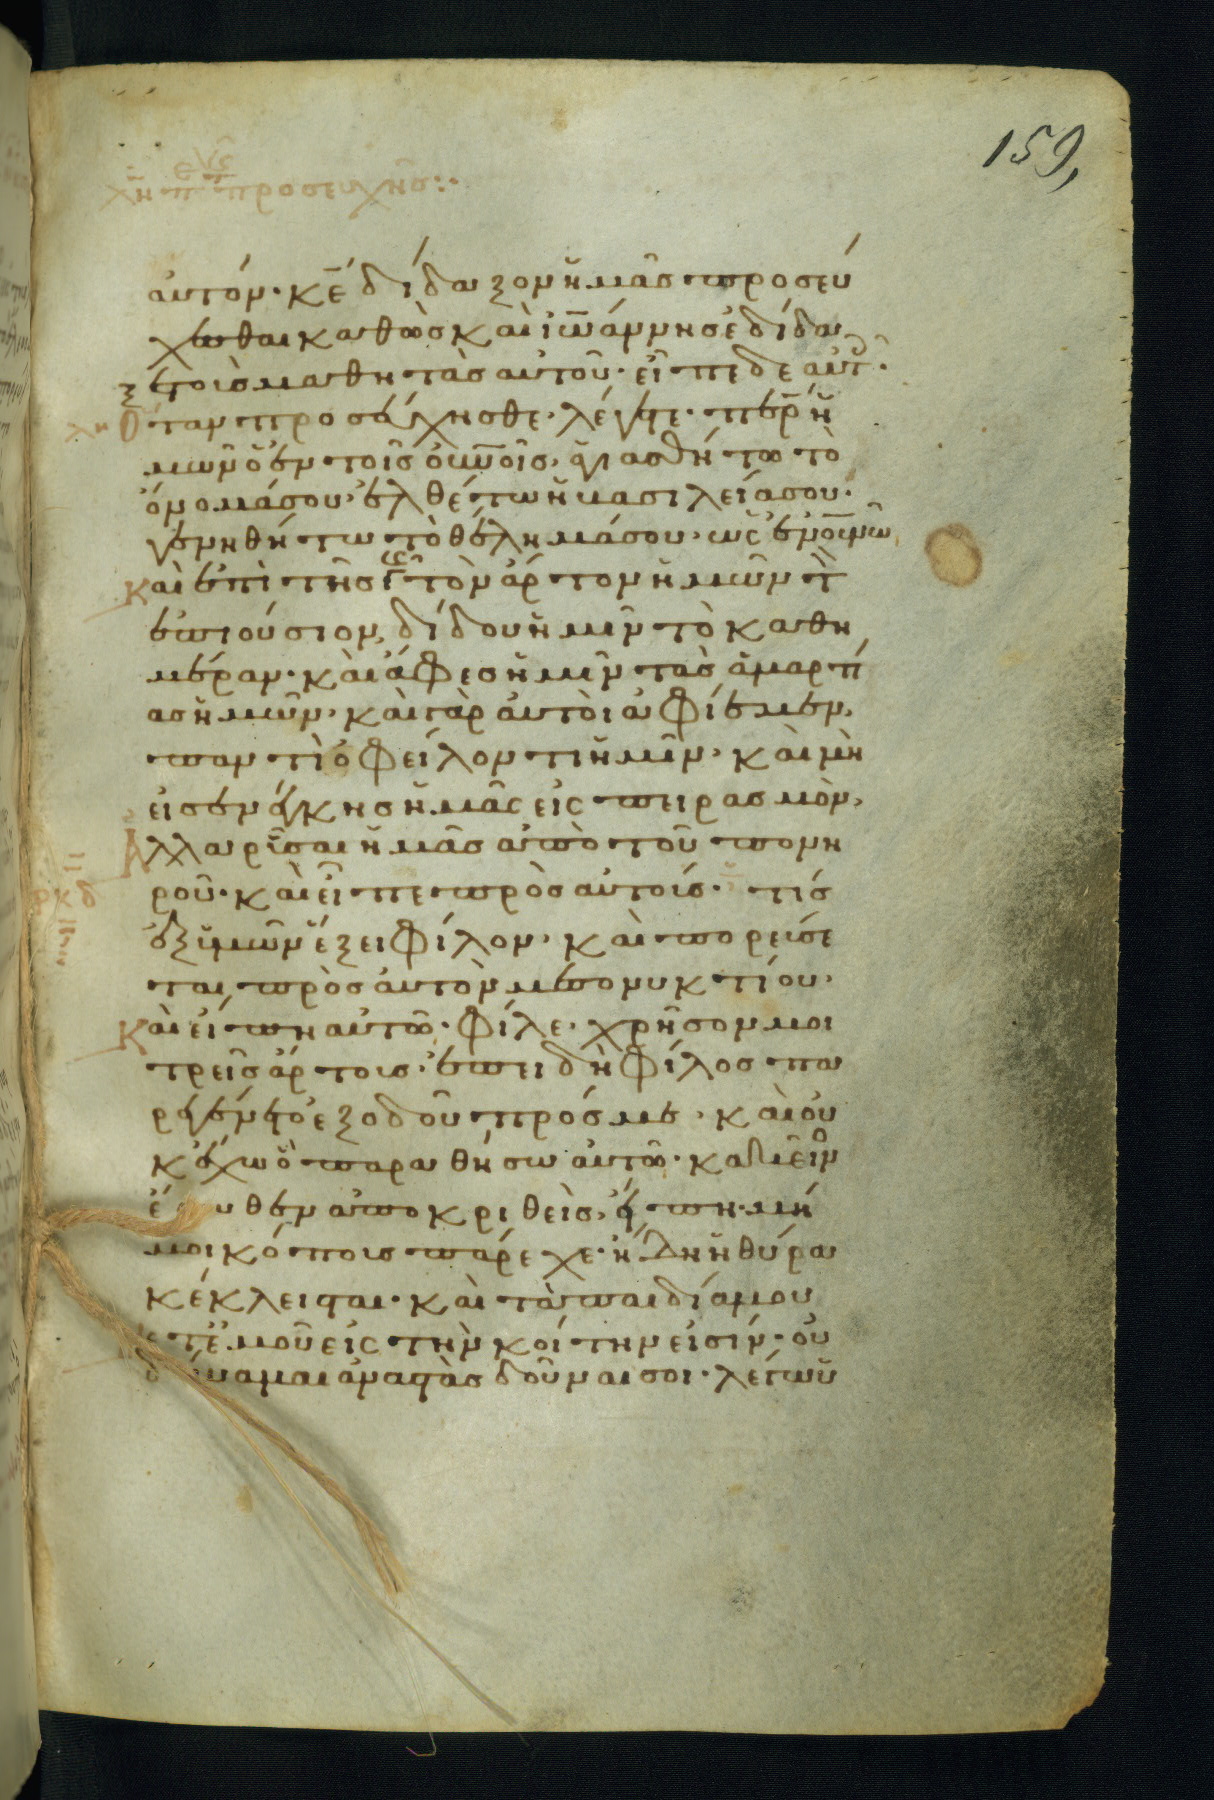 159,
λη π προσευχῆσ:·
αὐτόν· κε δίδαξον ἡμᾶσ προσεύ
χεσθαι καθὼσ καὶ ἰωάννησ ἐδίδα
ξε τοὺσ μαθητὰσ αὐτοῦ· εἶπε δε αὐτ·
Ὅταν προσεύχησθε· λέγετε· περ ἡ
μῶν ὁ ἐν τοῖσ οὐνοῖσ, ἁγιασθήτω τὸ
ὄνομά σου· ἐλθέτω ἡ βασιλεία σου·
γενηθήτω τὸ θέλημά σου· ὡς ἐν οὐνῶ,
Καὶ ἐπὶ τῆσ γῆσ τὸν ἄρτον ἡμῶν τὸ
ἐπιούσιον, δίδου ἡμῖν τὸ καθη
μέραν· καὶ ἄφεσ ἡμῖν τὰσ ἁμαρτί
ασ ἡμῶν· καὶ γὰρ αὐτοὶ ἀφίεμεν,
παντὶ ὀφείλοντι ἡμῖν· καὶ μὴ
εἰσενέγκησ ἡμᾶς εἰς πειρασμὸν,
Ἀλλα ρῦσαι ἡμᾶσ ἀπὸ τοῦ πονη
ροῦ· καὶ εἶπε πρὸσ αὐτούσ· τίσ
ἐξ ὑμῶν ἕξει φίλον· καὶ πορεύσε
ται πρὸσ αὐτὸν μεσονυκτίου·
Καὶ εἴπη αὐτῶ· φίλε· χρῆσον μοι
τρεῖσ ἄρτουσ· ἐπειδὴ φίλοσ πα
ρεγένετο ἐξ ὁδοῦ πρόσ με· καὶ οὐ
κ ἔχω ὃ παραθήσω αὐτῶ· κακεῖν
ἔσωθεν ἀποκριθεὶσ, εἴπη· μή
μοι κόπουσ πάρεχε· ἤδη ἡ θύρα
κέκλεισται· καὶ τὰ παιδία μου
μετ ἐμοῦ εἰς τὴν κοίτην εἰσίν· οὐ
δύναμαι ἀναστὰσ δοῦναι σοι· λέγω ὑ